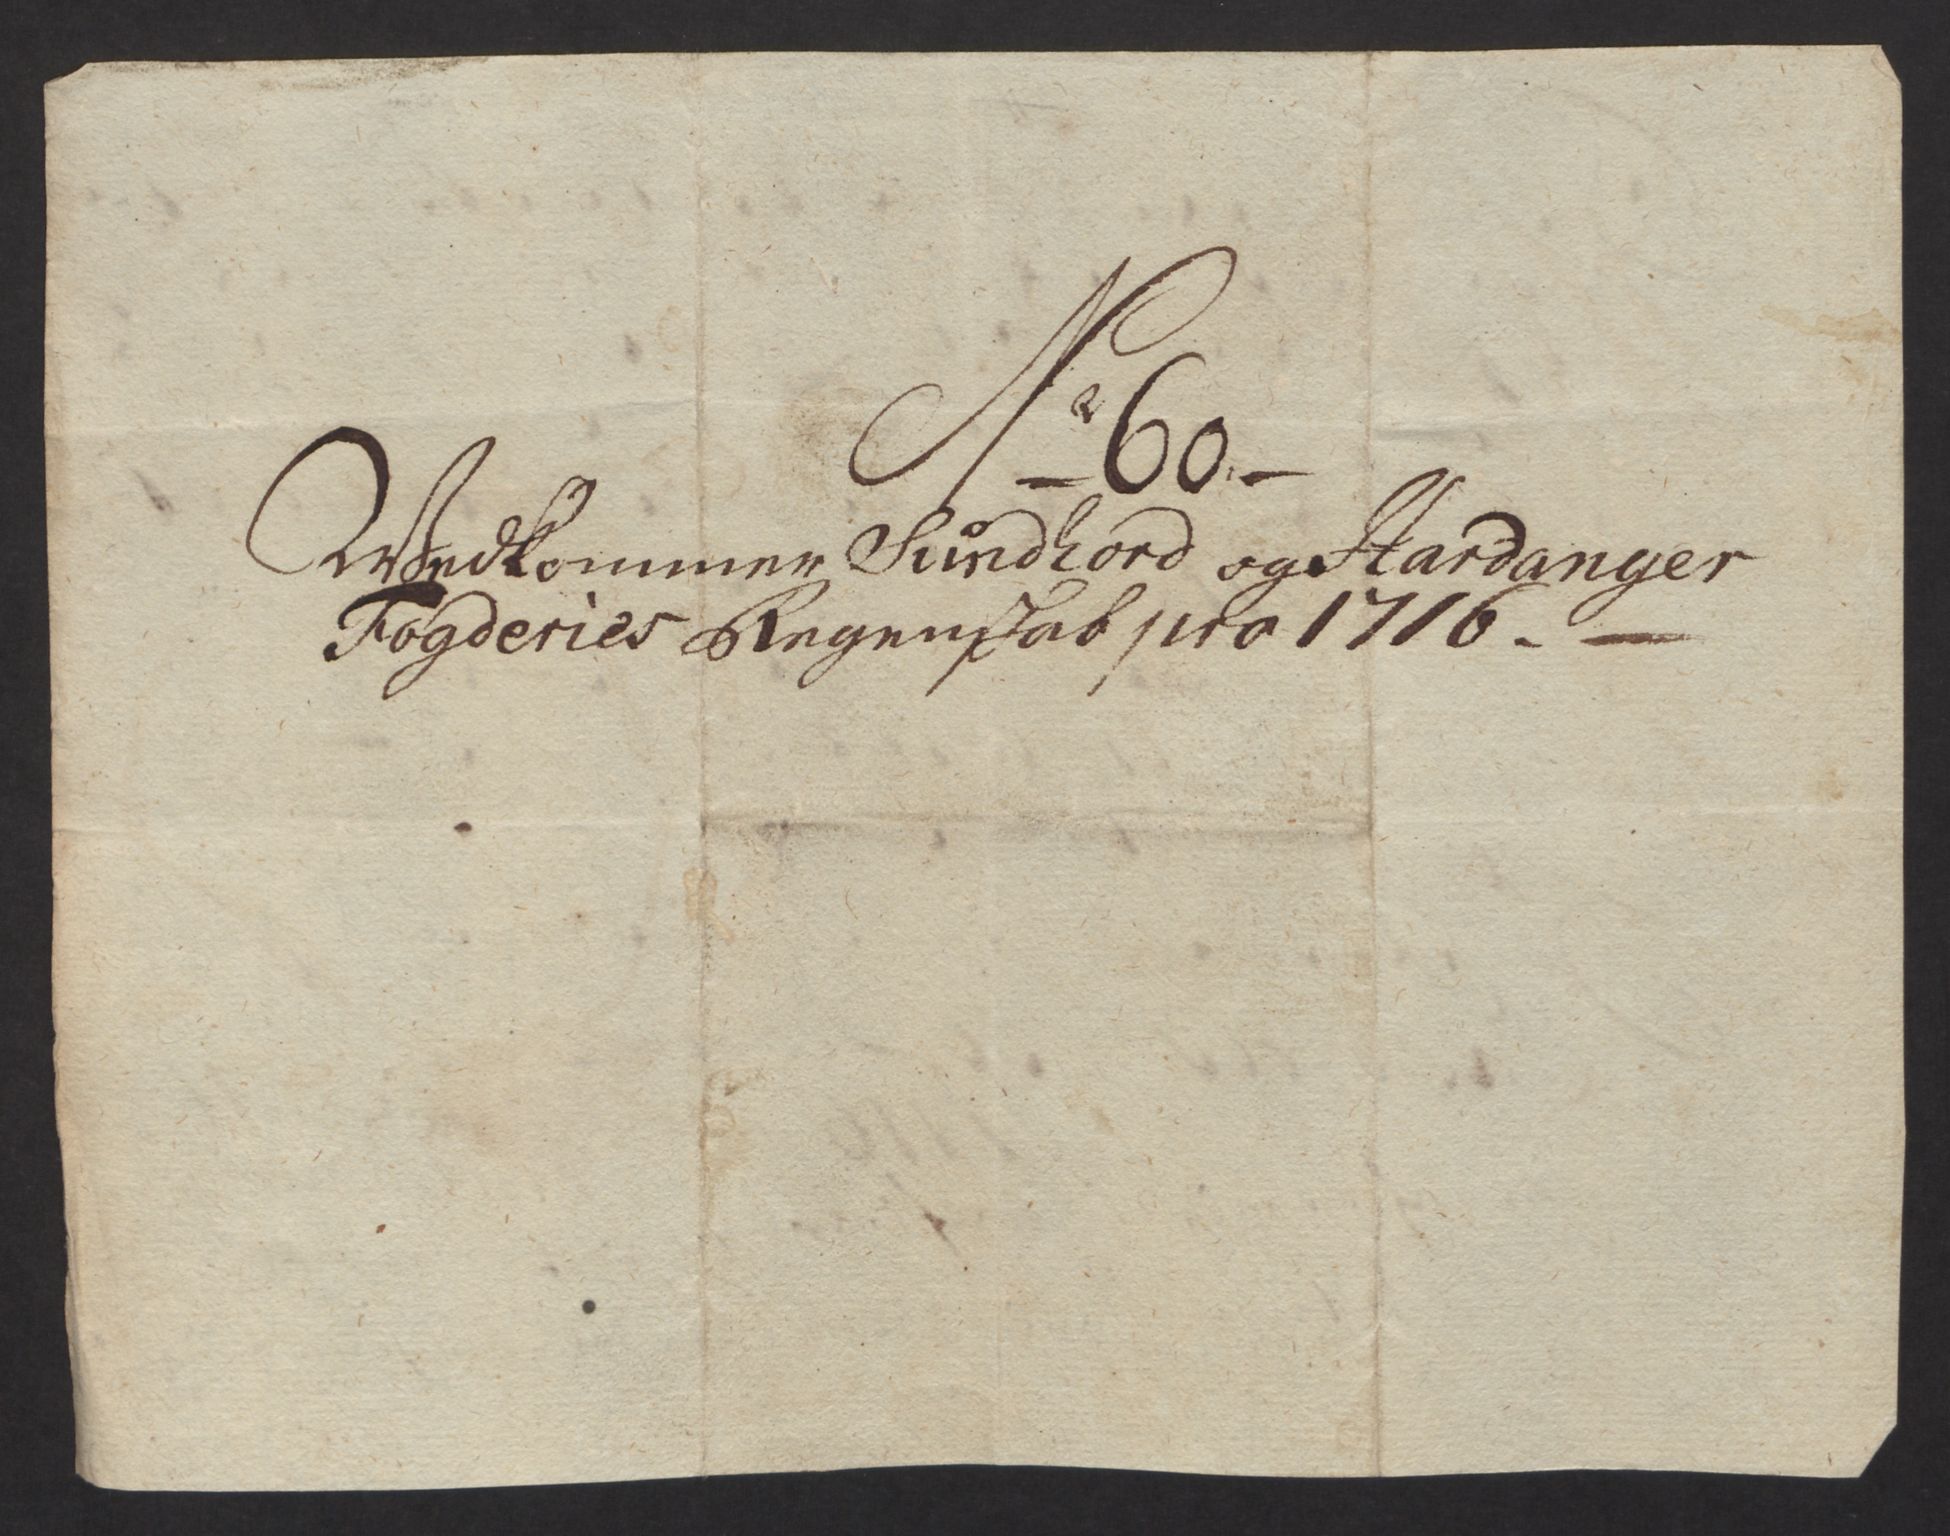 No 60.
Vedkommer Sundhord og Hardanger
Fogderies Regenskab pro 1716.